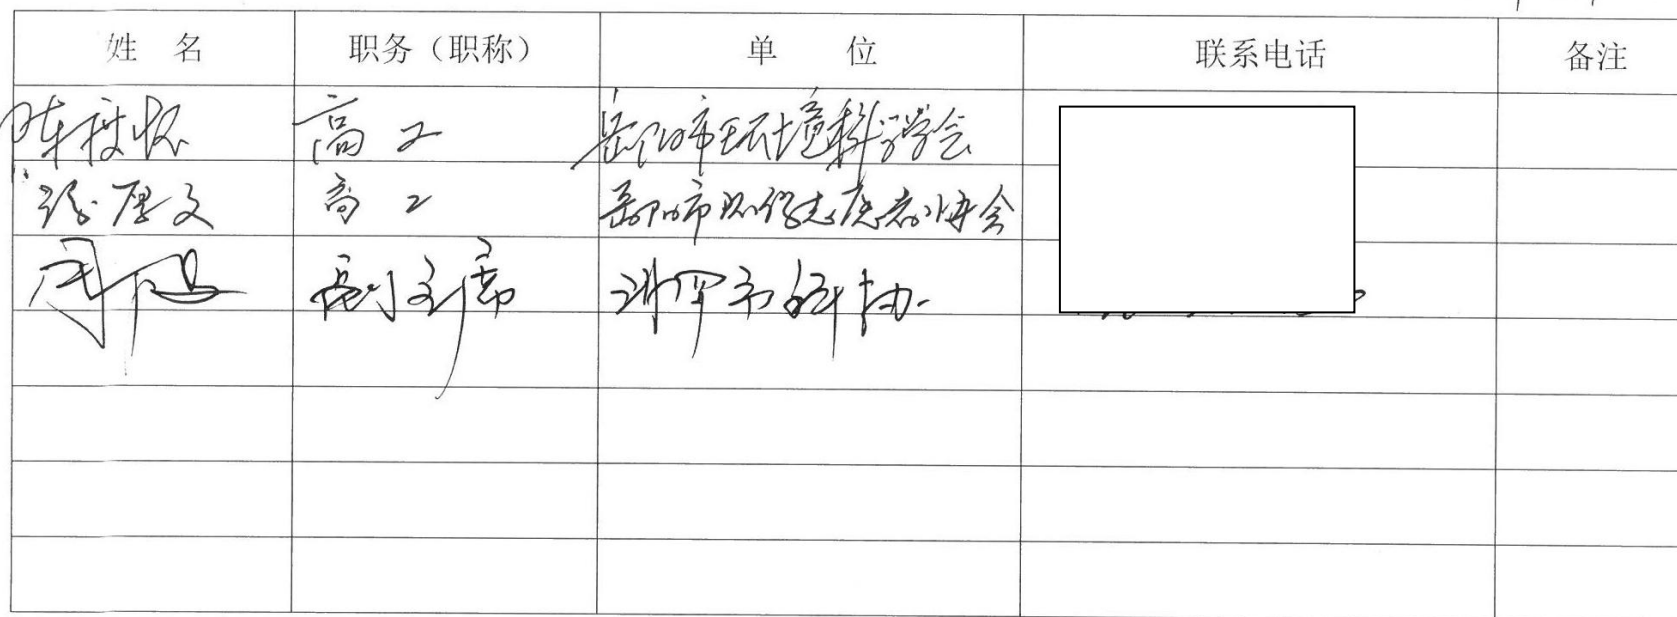 姓 名 职务（职称） 单 位 联系电话 备注
陈度怀 高工 岳阳市环境科学学会
厚文 高工 岳阳市环保志愿者协会
周 副主席 汨罗市科协